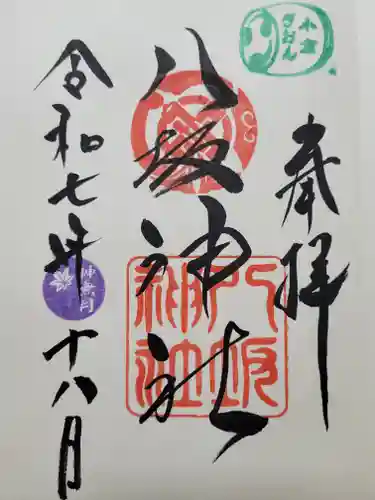 奉拝
小倉
ぎおん
八坂神社
八坂
神社
令和七年
神無月
十八月